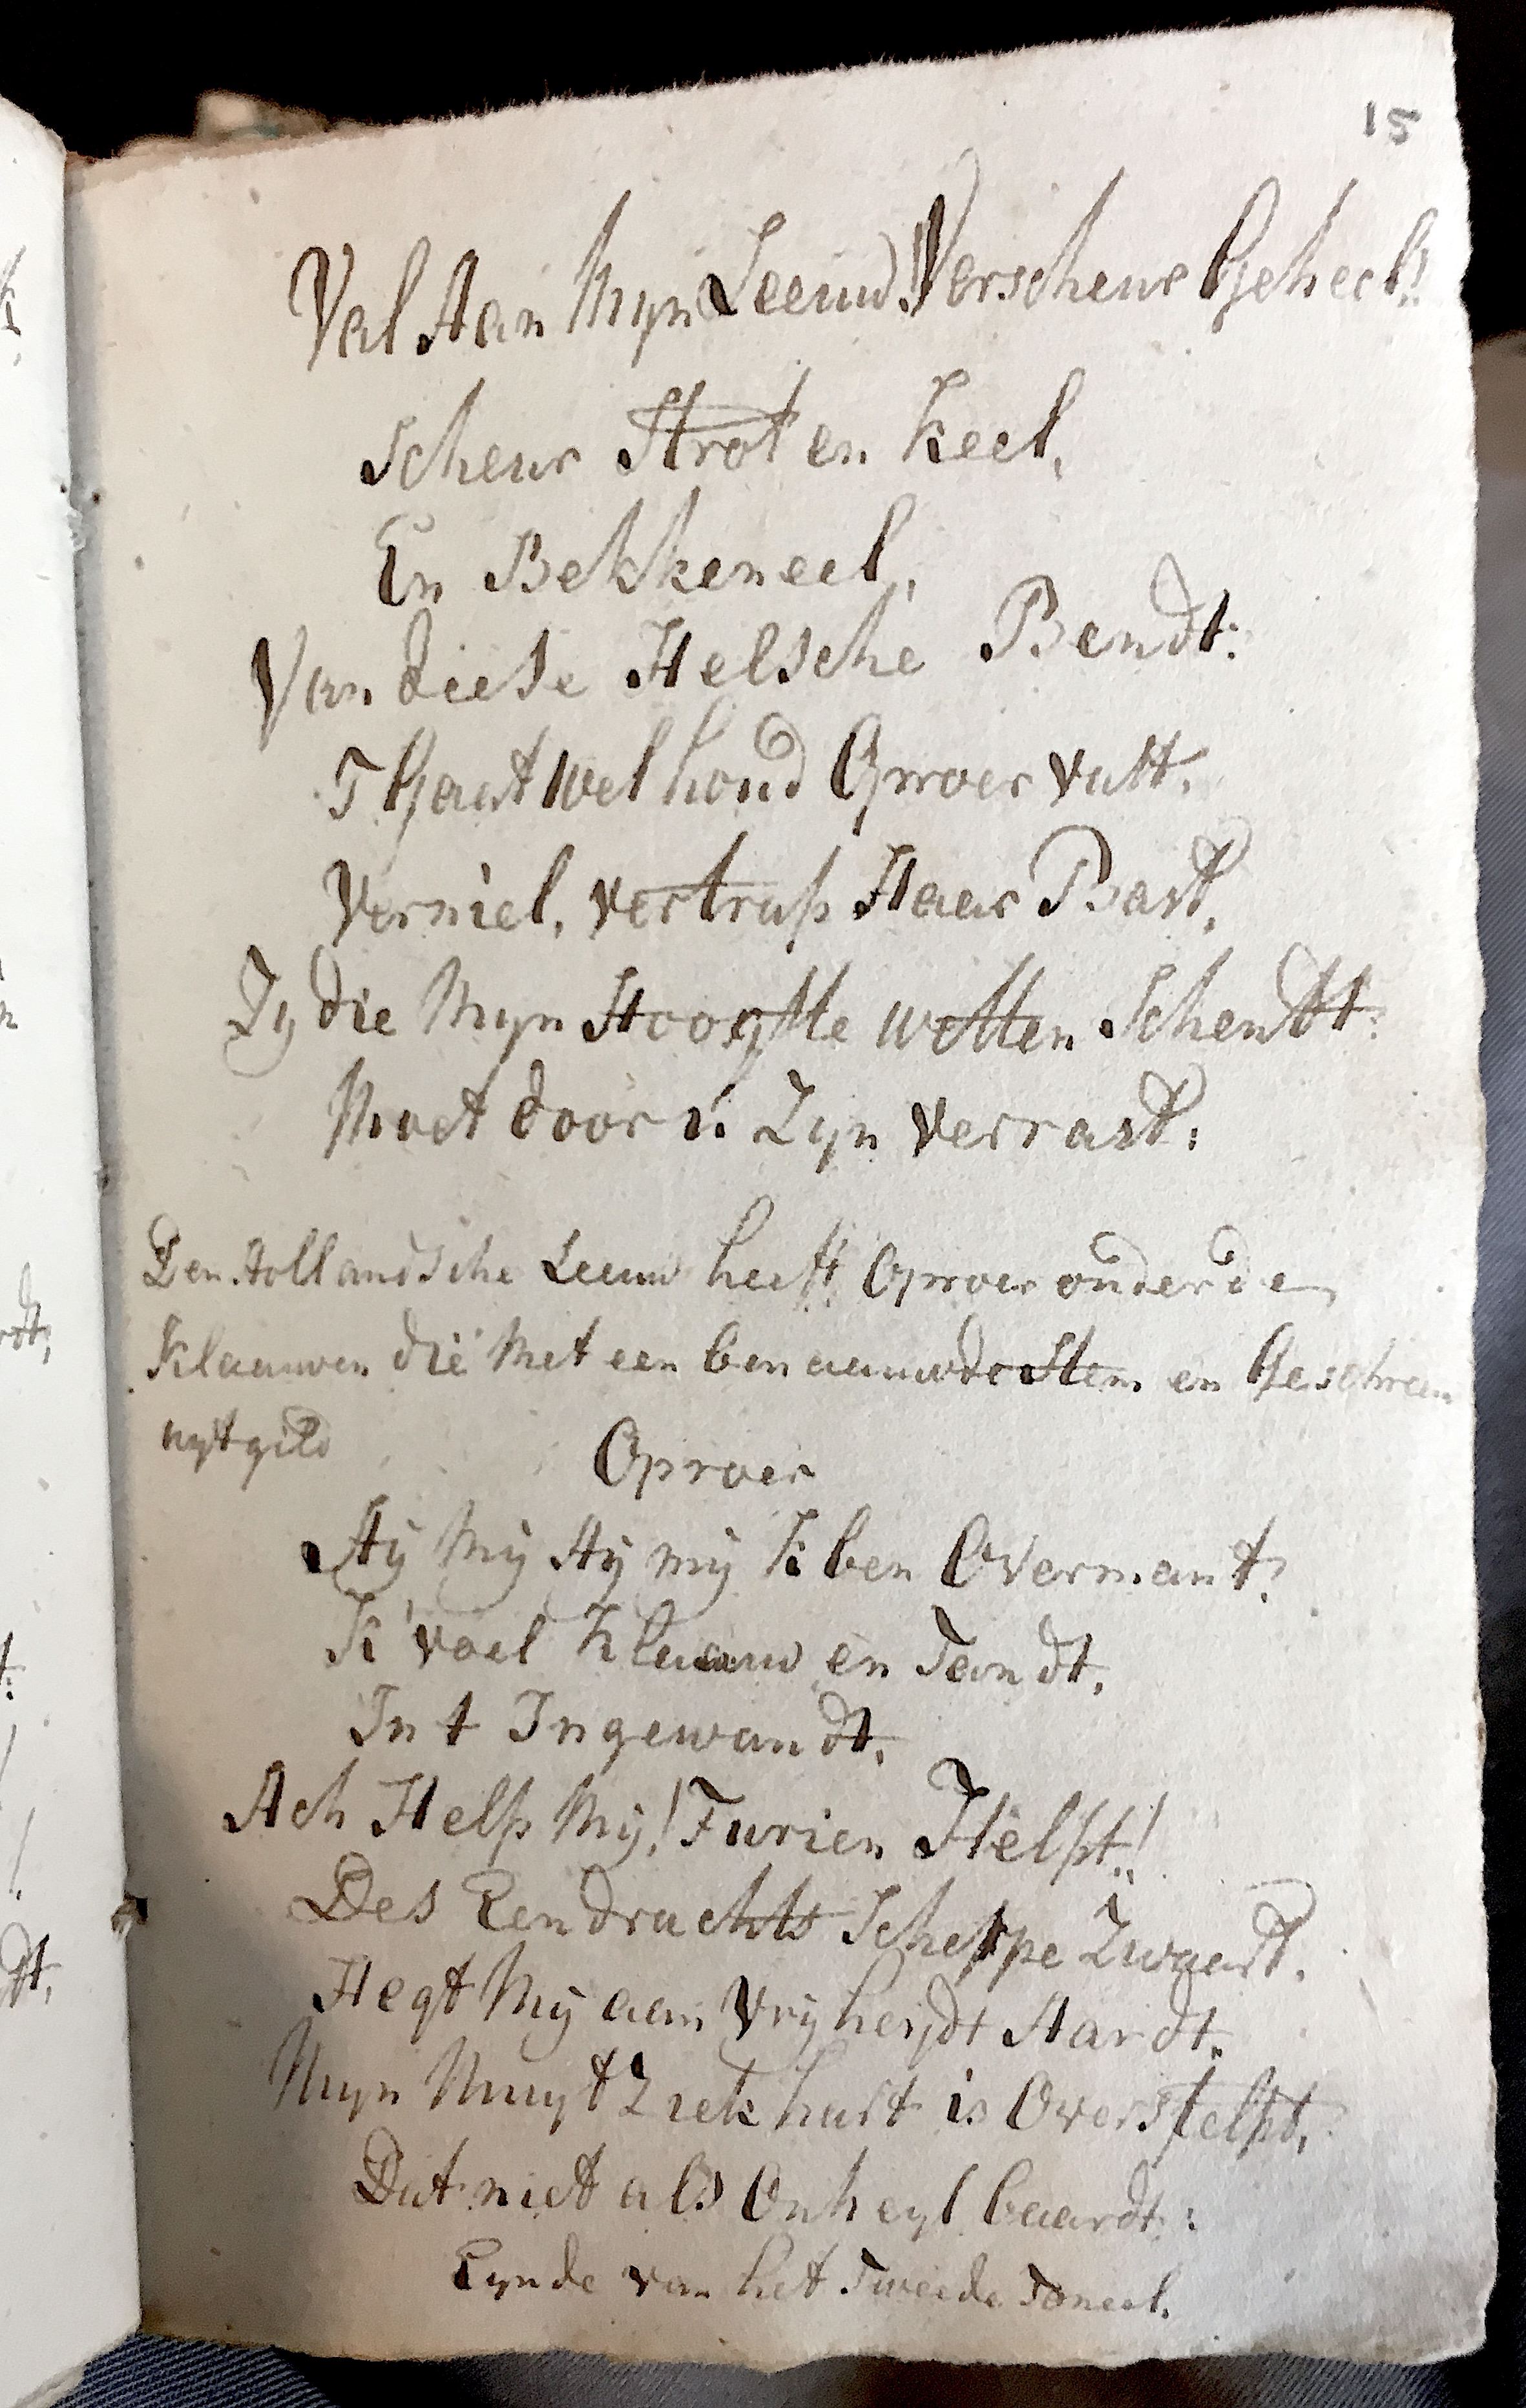 15
Val Aan Myn Leeuw! Verscheur Geheel!
Scheur Strot en Keel,
En Bekkeneel,
Van diese Helsche Bendt:
T Gaat wel houd Oproer vast,
Verniel, vertrap Haar Bast,
Zy die Myn Hoogtte wetten Schendt:
Moet door u Zyn verrast:
Den Hollandsche Leeuw heeft Oproer onder de
Klaauwen die Met een benaauwde Stem en Geschreeu
uytgild
Oproer
Aÿ Mÿ Aÿ mÿ K ben Overmant!
K'voel Klaauw en Tandt,
In t Ingewandt,
Ach Help Mÿ! Furien Helpt!
Des Eendrachts Scherpe Zwaart,
Hegt Mÿ aan Vrÿheydt Aardt,
Myn Muyt Ziek hart is Overstelpt,
Dat niet als Onheyl baardt:
Eynde van het Tweede Toneel.